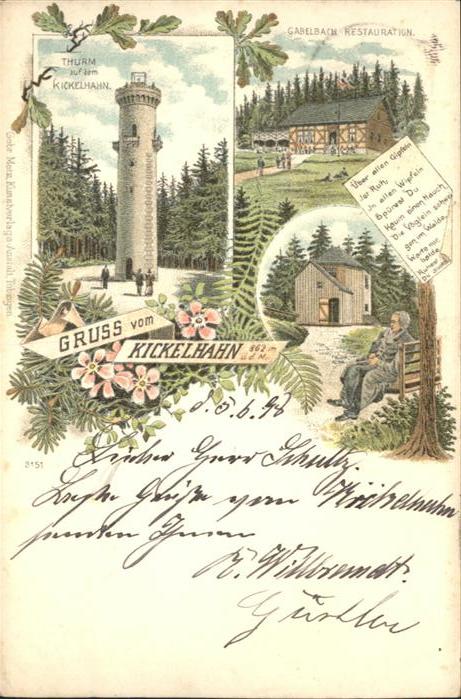 THURM
auf dem
KICKELHAHN.
GABELBACH RESTAURATION.
Über allen Gipfeln
ist Ruh,
In allen Wipfeln
Spürest Du
Kaum einen Hauch
Die Vögelein schwei-
gen im Walde,
Warte nur
balde
Ruhest
Du auch
Gebr. Metz, Kunstverlags-Anstalt, Tübingen
GRUSS vom
KICKELHAHN 862 m
ü. d. M.
d. 5. 6. 98
3151
Lieber Herr Schultz.
Beste Grüße vom Kickelhahn
senden Ihnen
R. Willbrandt.